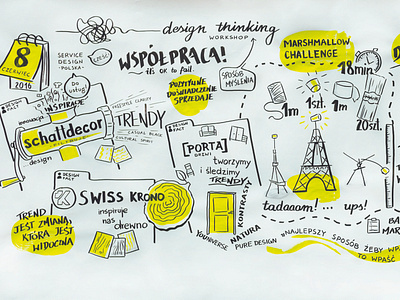 8
CZERWIEC
2016
SERVICE
DESIGN
•POLSKA•
CZEŚĆ
design thinking
WORKSHOP
WSPÓŁPRACA!
it's OK to fail
DO
USŁUG!
INSPIRACJE
innowacja
schattdecor
design
DESIGN
FACT
FREESTYLE CLARITY
TRENDY
CASUAL BLACK
CULTURAL SPIRIT
POZYTYWNE
DOŚWIADCZENIE
SPRZEDAJE
SPOSÓB
MYŚLENIA
MARSHMALLOW
CHALLENGE
18min
1m
1szt.
1m
20szt.
DESIGN
FACT
[PORTA]
DRZWI
tworzymy
i śledzimy
TRENDY
DESIGN
FACT
SWISS KRONO
inspiruje
nas
drewno
TREND
JEST ZMIANĄ,
KTÓRA JEST
WIDOCZNA
KONTRASTY
NATURA
YOUNIVERSE
PURE DESIGN
tadaaam! ... ups!
NAJLEPSZY SPOSÓB ŻEBY
TO WPAŚĆ